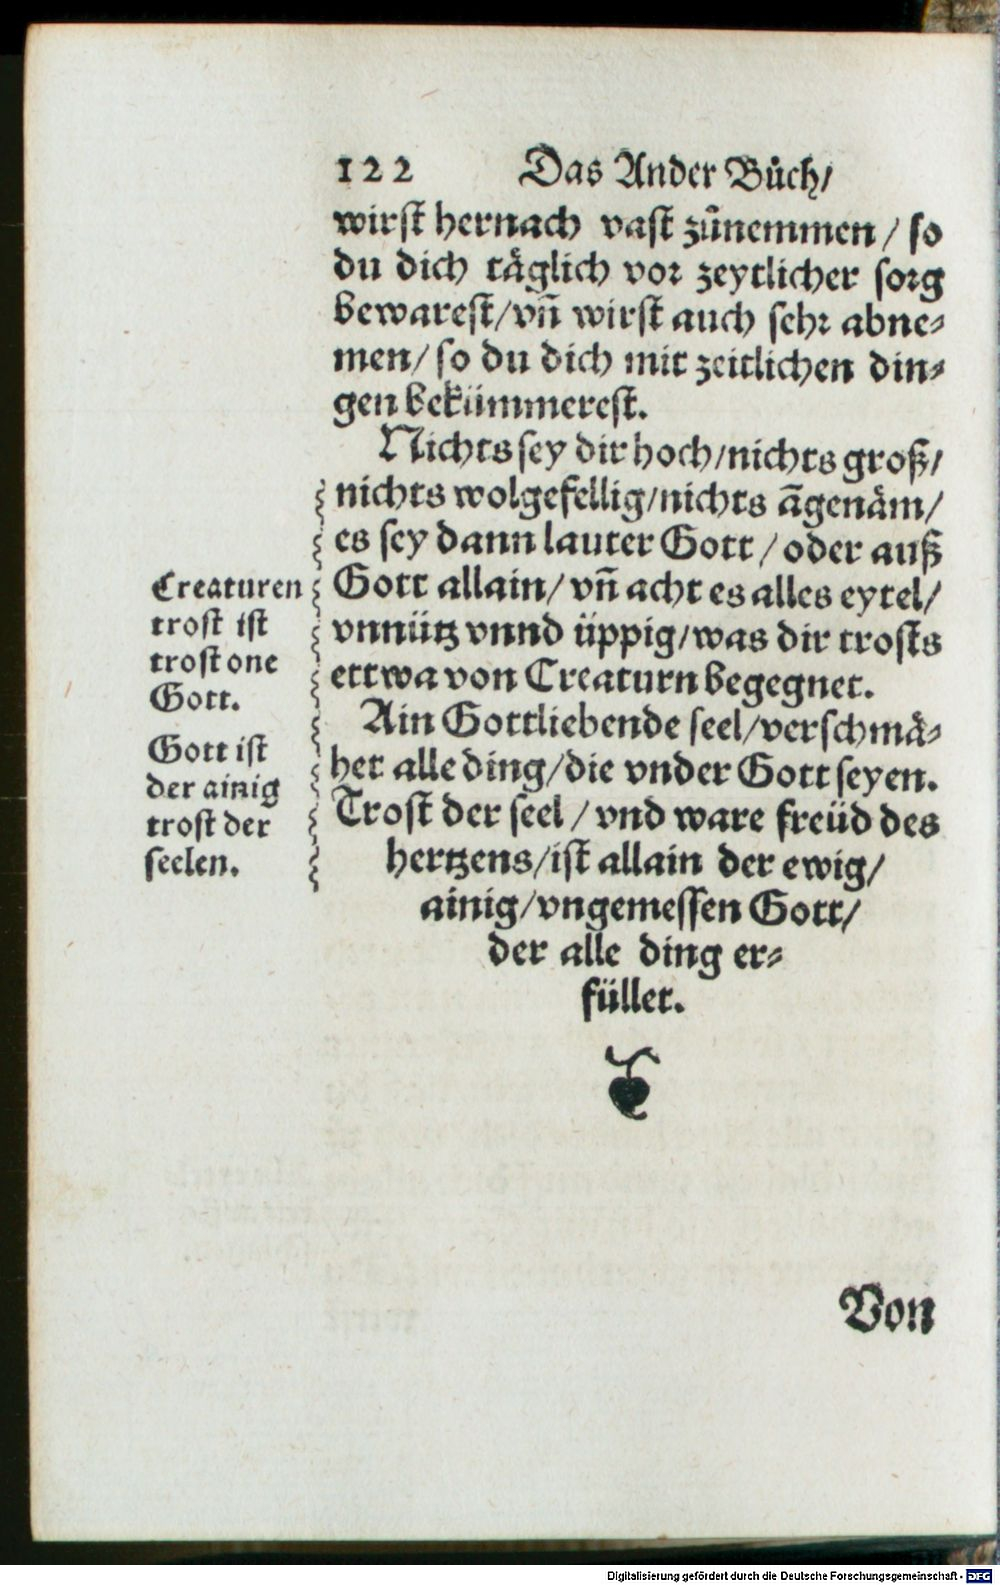 122 Das Ander Bůch/
wirst hernach vast zůnemmen / so
du dich täglich vor zeytlicher sorg
bewarest/vñ wirst auch sehr abne⸗
men/ so du dich mit zeitlichen din⸗
gen bekümmerest.
Nichts sey dir hoch/nichts groß/
nichts wolgefellig/nichts āgenäm/
es sey dann lauter Gott / oder auß
Gott allain/ vñ acht es alles eytel/
vnnütz vnnd üppig/was dir trosts
ettwa von Creaturn begegnet.
Ain Gottliebende seel/verschmä⸗
het alle ding/die vnder Gott seyen.
Trost der seel / vnd ware freüd des
hertzens/ist allain der ewig/
ainig/vngemessen Gott/
der alle ding er⸗
füllet.
Creaturen
trost ist
trost one
Gott.
Gott ist
der ainig
trost der
seelen.
Von
Digitalisierung gefördert durch die Deutsche Forschungsgemeinschaft - DFG